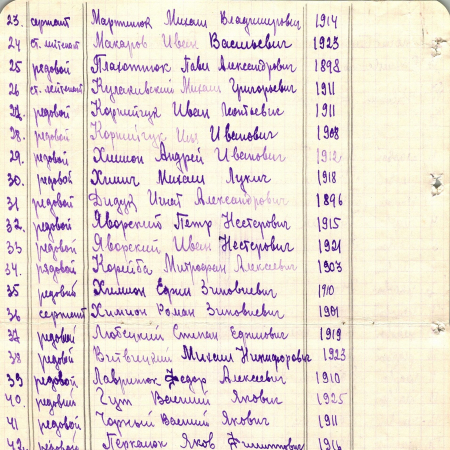 23. сержант Мартинюк Михаил Владимирович 1914
24 ст. лейтенант Макаров Иван Васильевич 1923
25 редовой Плахотнюк Павел Александрович 1898
26 ст. лейтенант Кулаковский Михаил Григориевич 1911
27. редовой Корнейчук Иван 1911
28. редовой Корнийчук Иванович 1908
29. редовой Химион Андрей Иванович 1912
30. редовой Химич Михаил Лукич 1918
31 редовой Дидух Игнат Александрович 1896
32. редовой Яворский Петр Нестерович 1915
33 редовой Яворский Иван Нестерович 1921
34. рядовой Корейба Митрофан Алексеевич 1903
35 редовий Химион Зиновиевич 1910
36 сержант Химион Роман Зиновиевич 1901
37 редовий Любецкий Степан 1919
38 редовой Витвицкий Михаил Никифорович 1923
39 редовой Лавринюк Федор Алексеевич 1910
40. редовий Гут Василий Якович 1925
41 редовой Чорный Василий Якович 1911
42. редовой Яков Филиппович